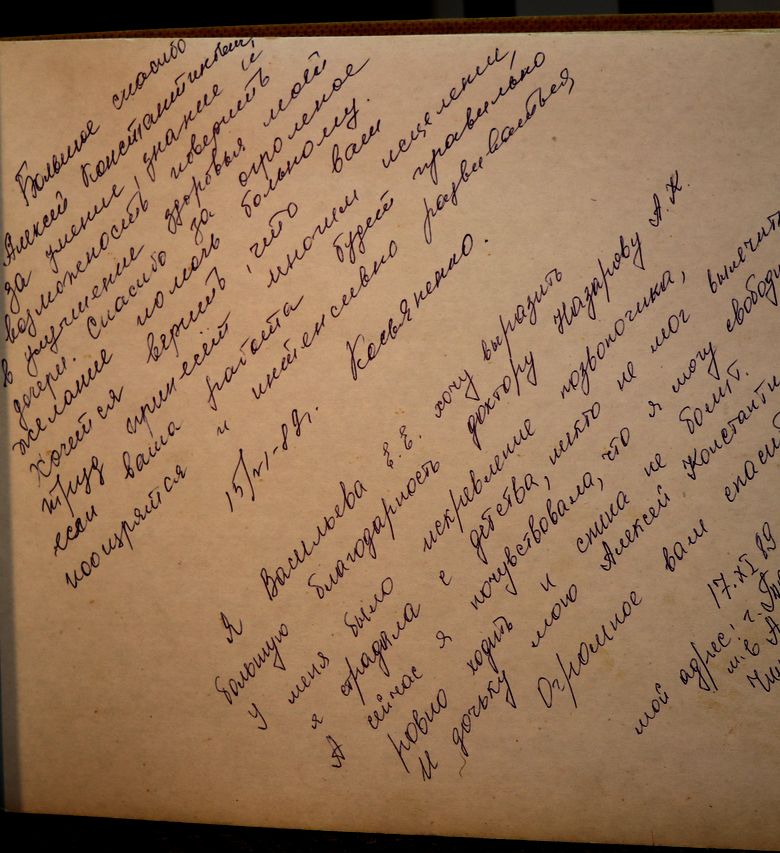 Большое спасибо
Алексей Константинович,
за умение, знание и
возможность поверить
в улучшение здоровья моей
дочери. Спасибо за огромное
желание помочь больному.
Хочется верить, что ваш
труд принесёт многим исцелении,
если ваша работа будет правильно
поощрятся и интенсивно развиваться,
15/XI-89г. Косьяненко.
Я Васильева Е.Е. хочу выразить
большую благодарность доктору Назарову А.К.
у меня было искревление позвоночика,
я страдала с детства, никто не мог вылечить
А сейчас я почувствовала, что я могу свободн
ровно ходить и спина не болит.
И дочьку мою Алексей Константи
Огромное вам спасиб
17.XI 89
мой адрес: г.
м-в А